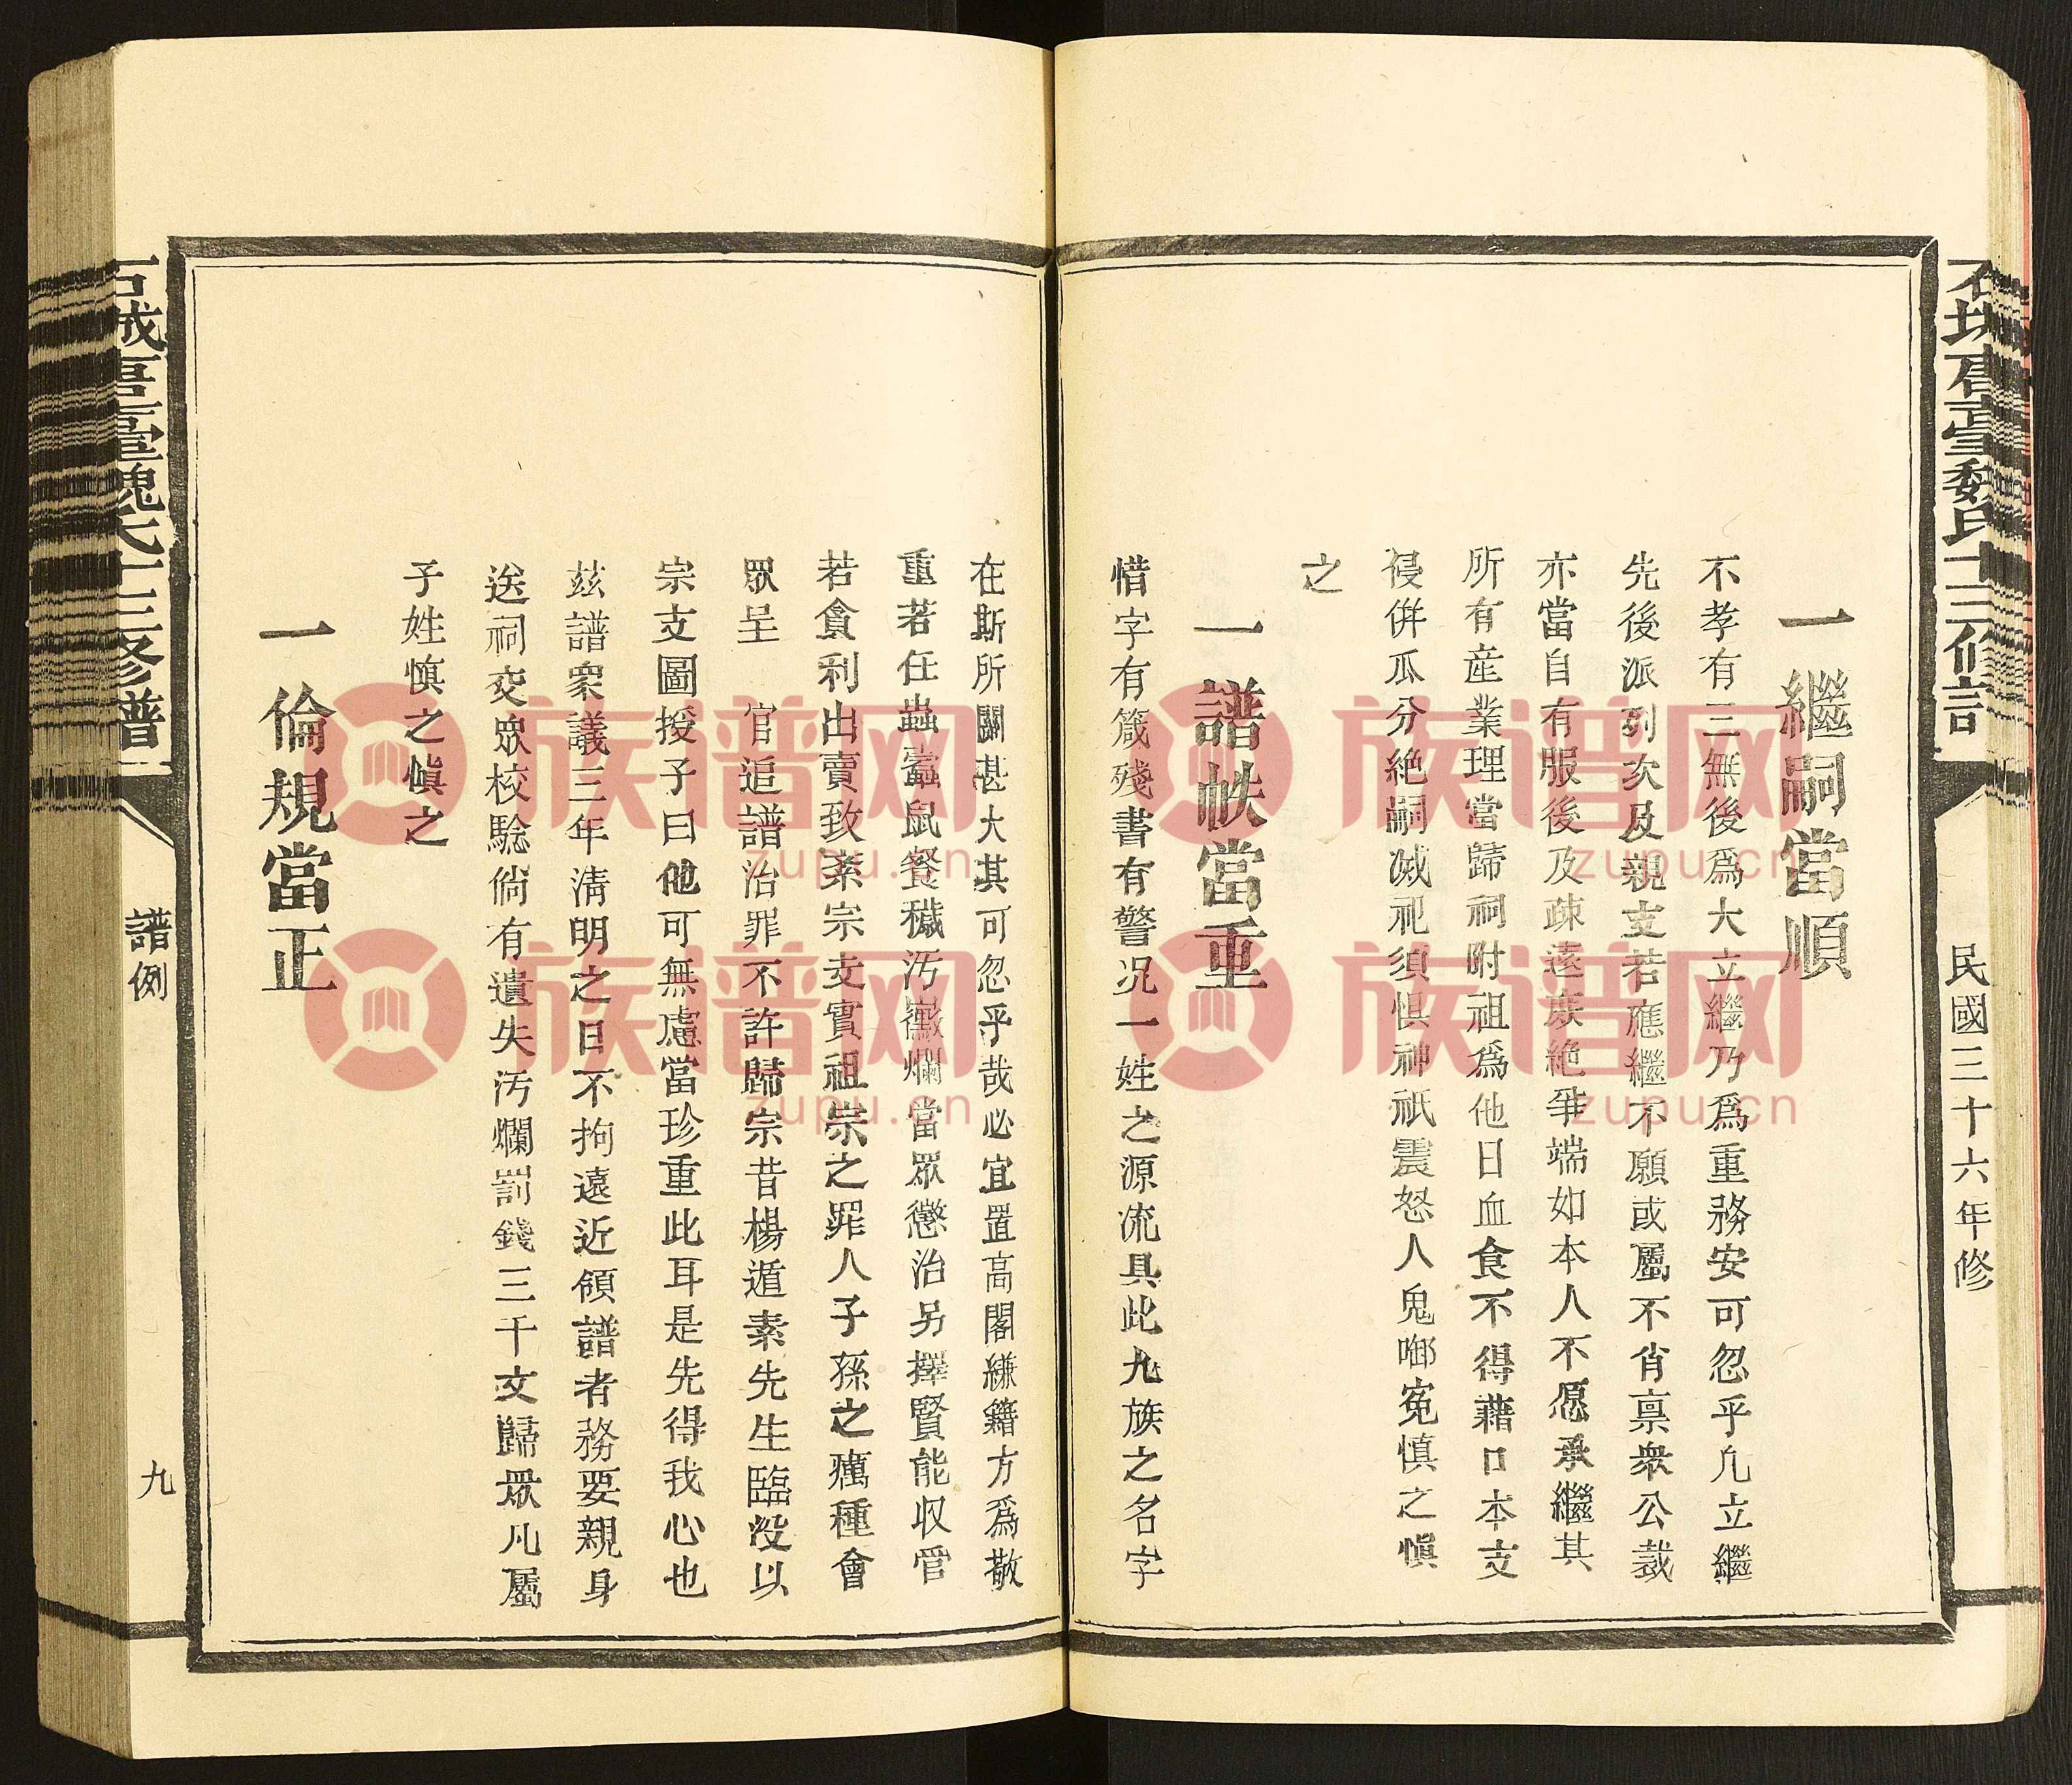 一繼嗣當順
不孝有三無後爲大立繼乃爲重務安可忽乎凢立繼
先後派列次及親支若應繼不願或屬不肖禀衆公裁
亦當自有服後及疎遠庶絶爭端如本人不愿承繼其
所有産業理當歸祠附祖爲他日血食不得藉口本支
侵併瓜分絶嗣滅祀須惧神祇震怒人鬼啣寃慎之慎
之
一譜帙當重
惜字有箴殘書有警况一姓之源流具此九族之名字
在斯所關甚大其可忽乎哉必宜置高閣縑籍方爲敬
重若任蟲蠹鼠餐穢汚黴爛當眾懲治另擇賢能収管
若貪利出賣致紊宗支實祖宗之罪人子孫之癘種會
眾呈　官追譜治罪不許歸宗昔楊遁素先生臨没以
宗支圖授子曰他可無慮當珍重此耳是先得我心也
茲譜衆議三年清明之日不拘遠近領譜者務要親身
送祠交眾校騐倘有遺失汚爛罰錢三千文歸眾凡屬
子姓慎之慎之
一倫規當正
民國三十六年修
譜例
九
族谱网
zupu.cn
族谱网
zupu.cn
族谱网
zupu.cn
族谱网
zupu.cn